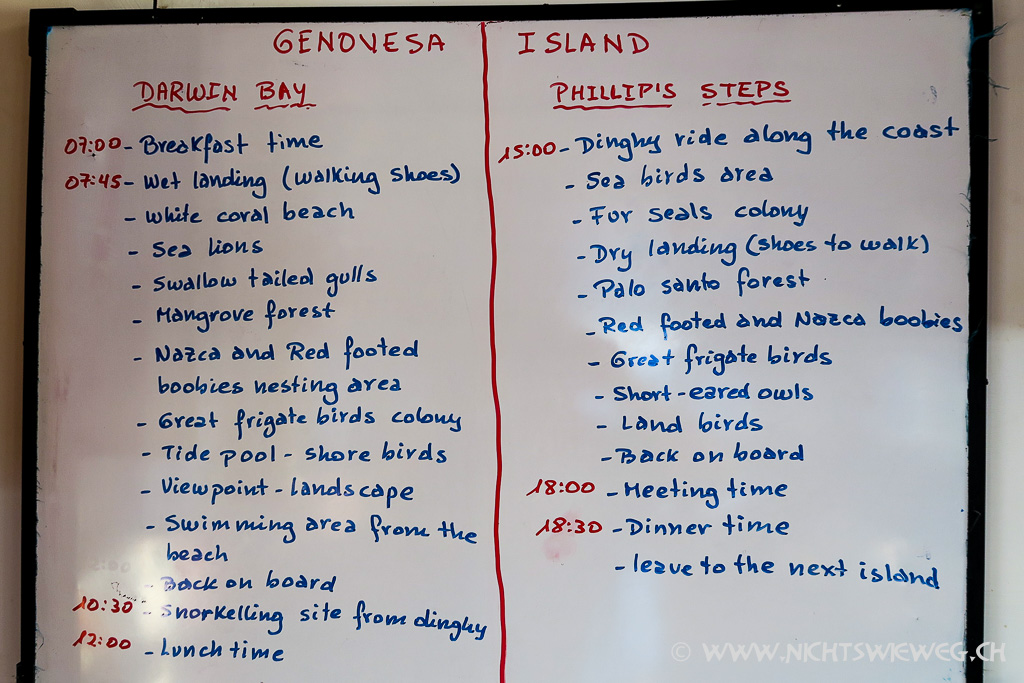 GENOVESA ISLAND
DARWIN BAY
07:00 - Breakfast time
07:45 - Wet landing (walking shoes)
- White coral beach
- Sea lions
- Swallow tailed gulls
- Mangrove forest
- Nazca and Red footed
boobies nesting area
- Great frigate birds colony
- Tide pool - shore birds
- Viewpoint - landscape
- Swimming area from the
beach
- Back on board
10:30 - Snorkelling site from dinghy
12:00 - Lunch time
PHILLIP'S STEPS
15:00 - Dinghy ride along the coast
- Sea birds area
- Fur seals colony
- Dry landing (shoes to walk)
- Palo santo forest
- Red footed and Nazca boobies
- Great frigate birds
- Short-eared owls
- Land birds
- Back on board
18:00 - Meeting time
18:30 - Dinner time
- leave to the next island
© WWW.NICHTSWIEWEG.CH